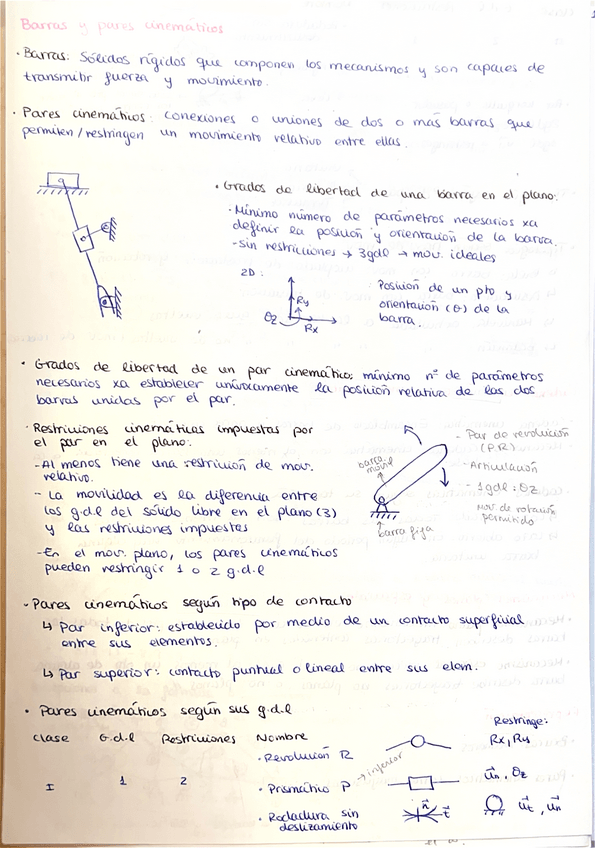 Barras y pares cinemáticos
· Barras: Sólidos rígidos que componen los mecanismos y son capaces de
transmitir fuerza y movimiento.
· Pares cinemáticos: conexiones o uniones de dos o más barras que
permiten/restringen un movimiento relativo entre ellas.
· Grados de libertad de una barra en el plano:
· Mínimo número de parámetros necesarios xa
definir la posición y orientación de la barra.
- sin restricciones → 3gdl → mov. ideales
2D:
Ry
θz
Rx
Posición de un pto y
orientación (θ) de la
barra.
· Grados de libertad de un par cinemático: mínimo nº de parámetros
necesarios xa establecer unívocamente la posición relativa de las dos
barras unidas por el par.
· Restricciones cinemáticas impuestas por
el par en el plano:
- Al menos tiene una restricción de mov.
relativo.
- La movilidad es la diferencia entre
los g.d.l del sólido libre en el plano (3)
y las restricciones impuestas
- En el mov. plano, los pares cinemáticos
pueden restringir 1 o 2 g.d.l
barra
móvil
barra fija
- Par de revolución
(P.R)
- Articulación
- 1gdl: θz
Mov. de rotación
permitido
- Pares cinemáticos según tipo de contacto
↳ Par inferior: establecido por medio de un contacto superficial
entre sus elementos.
↳ Par superior: contacto puntual o lineal entre sus elem.
· Pares cinemáticos según sus g.d.l
Restringe:
Clase G.d.l Restricciones Nombre
· Revolución R Rx, Ry
I 1 2 · Prismático P → inferior u⃗n, θz
· Rodadura sin
deslizamiento
n⃗ t⃗ u⃗t, u⃗n